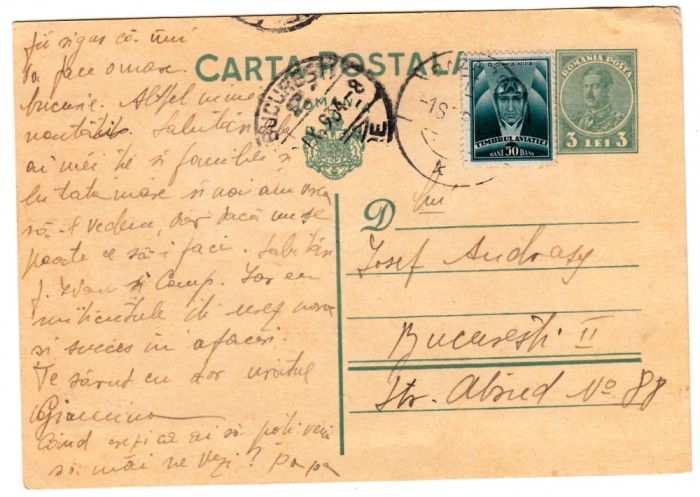 CARTA POSTALA
fii sigur că îmi
va face o mare
bucurie. Altfel nimic
noutăți. Salutări la
ai mei și familiei și
lui tata mare și noi am vrea
să-l vedem, dar dacă nu se
poate ce să-i faci. Salutări
J. Ivan și Comp. Iar eu
și succes in afaceri.
Te sărut cu dor
când crezi că ai să poți veni
să mai ne vezi? Pa pa
BUCUREȘTI
ROMANIA
TIMBRUL AVIATIEI
BANI 50 BANI
ROMANIA POSTA
3 LEI 3
D
Josef Andrasy
București II
Str. Abrud No 88